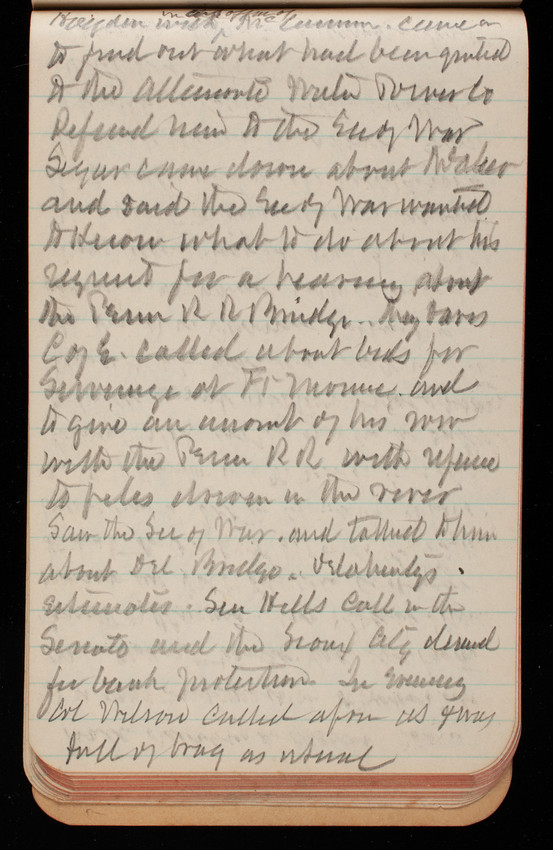 in case of Mr
Hayden with Mc Cammon. came in
to find out what had been granted
to the Alternate Water Power Co
Refered him to the Sec of War
Segur came down about
and said the Sec of War wanted
to Know what to do about his
request for a hearing about
the Penn R R Bridge. Davis
C of E. called about bids for
Sewerage at Ft Monroe. and
to give an account of his row
with the Penn R R with refence
to piles driven in the river
Saw the Sec of War. and talked to him
about Del Bridge.
estimates. Sen Hills Call in the
Senate and the Sioux City demand
for bank protection In Evening
Col Wilson called upon us & was
full of brag as usual